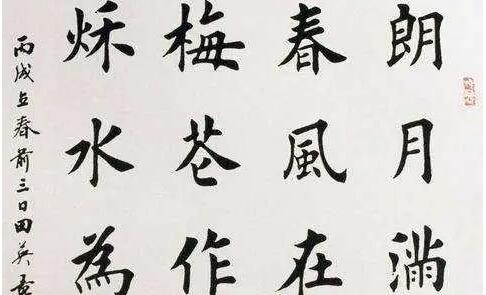 朗月滿
春風在
梅花作
秋水為
丙戌立春前三日田英